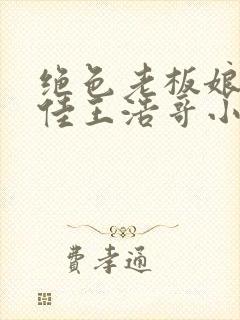 绝色老板娘
佳王浩哥小
费孝通